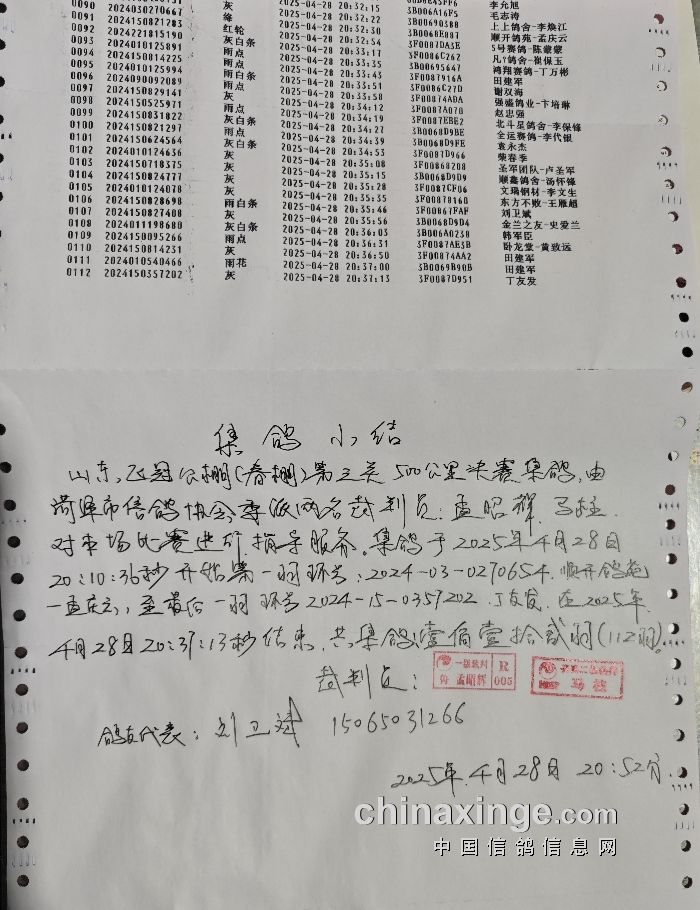 0090 2024030270667 灰 2025-04-28 20:32:15 李允旭
0091 2024150821283 绛 2025-04-28 20:32:22 3B006A16F5 毛志涛
红轮 2025-04-28 20:32:30 3B00690388 上上鸽舍-李焕江
0092 2024221815190 灰白条 3B0068E087 顺开鸽苑-孟庆云
0093 2024010125891 雨点 2025-04-28 3F0087DA3E 5号赛鸽-陈蒙蒙
0094 2024150814225 雨点 2025-04-28 20:33:18 3F0086C262 凡?鸽舍-崔保玉
0095 2024010125994 雨白条 2025-04-28 20:33:35 3B00695647 鸿翔赛鸽-丁万彬
0096 2024090092089 雨点 2025-04-28 20:33:43 3F0087916A 田建军
0097 2024150829141 灰 2025-04-28 20:33:51 3F0086C27D 谢双海
0098 2024150525971 雨点 2025-04-28 20:33:58 3F00874ADA 强盛鸽业-卞培琳
0099 2024150831822 灰白条 2025-04-28 20:34:12 3F0087A070 赵忠强
0100 2024150821297 雨点 2025-04-28 20:34:19 3F0087EBE2 北斗星鸽舍-李保锋
0101 2024150624564 灰白条 2025-04-28 20:34:27 3B0068D9BE 全运赛鸽-李代银
0102 2024010124636 灰 2025-04-28 20:34:39 3B0068D9FE 袁永杰
0103 2024150718375 灰 2025-04-28 20:34:53 3F0087D966 荣春季
0104 2024150824777 灰 2025-04-28 20:35:15 3F00868208 圣军团队-卢圣军
0105 2024010124078 灰 2025-04-28 20:35:28 3B0069D9D9 顺鑫鸽舍-汤怀锋
0106 2024150828698 雨白条 2025-04-28 20:35:35 3F0087CF06 文瑞钢材-李文生
0107 2024150827408 灰 2025-04-28 20:35:45 3F00878160 东方不败-王雁超
0108 2024011198680 灰白条 2025-04-28 20:35:56 3F00867FAF 刘卫斌
0109 2024150095266 雨点 2025-04-28 20:36:03 3B0068D9D4 金兰之友-史爱兰
0110 2024150814231 灰 2025-04-28 20:36:31 3B006A0238 韩军臣
0111 2024010540466 雨花 2025-04-28 20:36:50 3F0087AE3B 卧龙堂-黄致远
0112 2024150357202 灰 2025-04-28 20:37:00 3F00874AA2 田建军
2025-04-28 20:37:13 3B0069B90B 田建军
3F0087D951 丁友发
集鸽小结
山东飞冠公棚(春棚)第三关500公里决赛集鸽,由
菏泽市信鸽协会委派两名裁判员:孟昭辉、马柱.
对本场比赛进行指导服务。集鸽于2025年4月28日
20:10:36秒开始第一羽环号:2024-03-0270654.顺开鸽苑
-孟庆云,至最后一羽环号2024-15-0357202.丁友发,在2025年
4月28日20:37:13秒结束.共集鸽:壹佰壹拾贰羽(112羽)
裁判员: 一级裁判 鲁 孟昭辉 R 005 马柱
鸽友代表:刘卫斌 15065031266
2025年.4月28日 20:52分.
chinaxinge.com
中国信鸽信息网